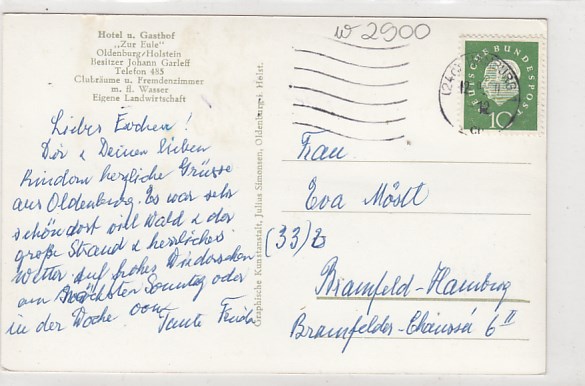 w 2900
Hotel u. Gasthof
„Zur Eule"
Oldenburg/Holstein
Besitzer Johann Garleff
Telefon 485
Clubräume u. Fremdenzimmer
m. fl. Wasser
Eigene Landwirtschaft
DEUTSCHE BUNDESPOST
10
(24
12
Liebes Evchen!
Dir & Deinen lieben
Kindern herzliche Grüsse
aus Oldenburg. Es war sehr
schön dort viel Wald & der
große Strand & herrliches
Wetter. Auf frohes Wiedersehen
am nächsten Sonntag oder
in der Woche vom Tante
Graphische Kunstanstalt, Julius Simonsen, Oldenburg i. Holst.
Frau
Eva Möstl
(33)
Bramfeld-Hamburg
Bramfelder-Chaussé 6 II